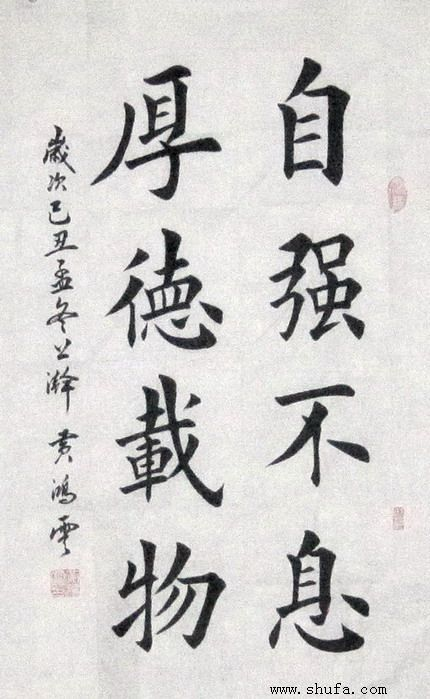 自强不息
厚德載物
歲次己丑孟冬上澣黄鴻雲
www.shufa.com